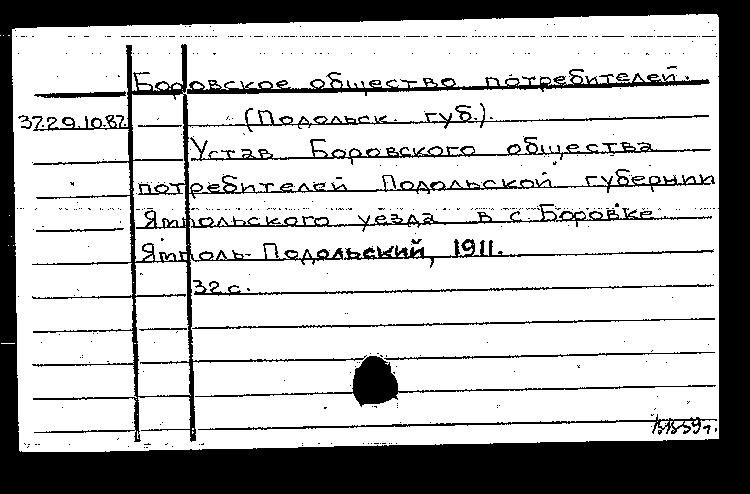 Боровское общество потребителей.
37.29.10.87. (Подольск. губ.).
Устав Боровского общества
потребителей Подольской губернии
Ямпольского уезда в с. Боровке
Ямполь-Подольский, 1911.
32 с.